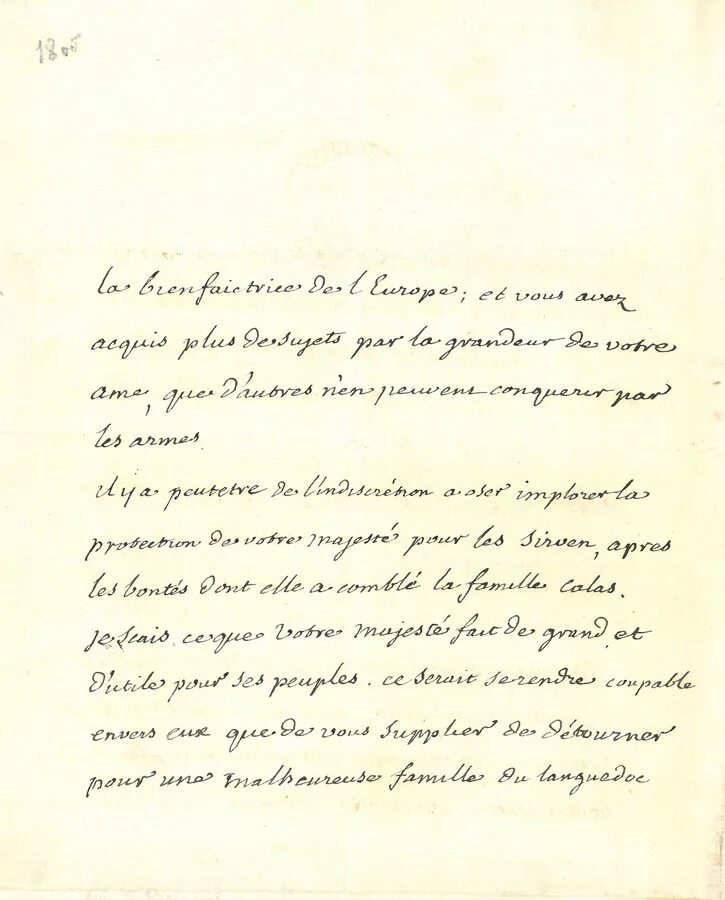 1805
la bienfaictrice de l'Europe; et vous avez
acquis plus de sujets par la grandeur de votre
ame, que d'autres n'en peuvent conquerir par
les armes.
il y a peutetre de l'indiscrétion a oser implorer la
protection de votre majesté pour les sirven, apres
les bontés dont elle a comblé la famille calas.
je scais ce que votre majesté fait de grand et
d'utile pour ses peuples. ce serait se rendre coupable
envers eux que de vous supplier de détourner
pour une malheureuse famille du languedoc